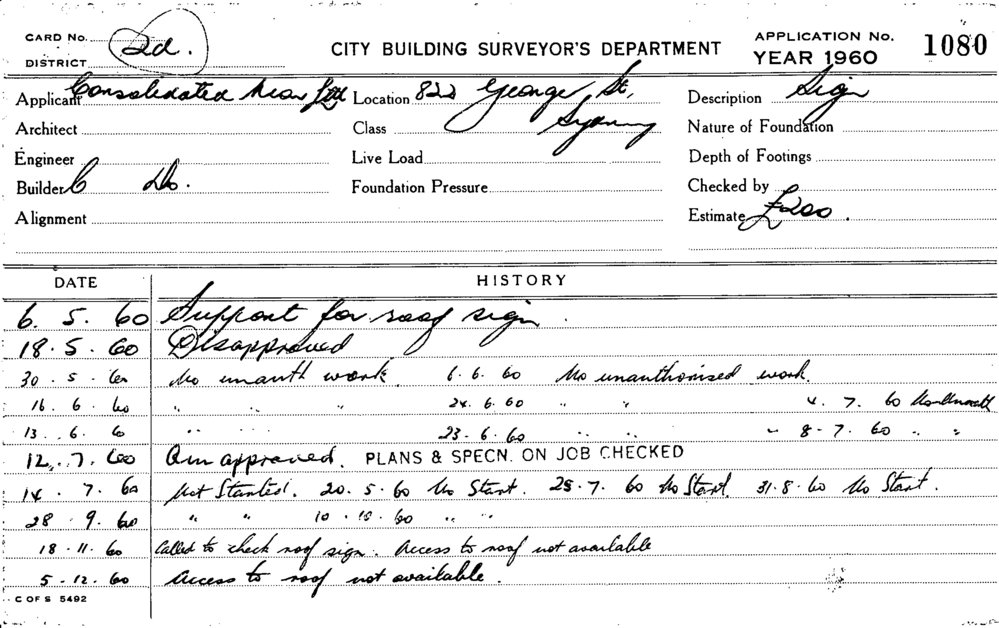 CARD No. 2d.
DISTRICT
CITY BUILDING SURVEYOR'S DEPARTMENT
APPLICATION No. 1080
YEAR 1960
Applicant Consolidated Neon Ltd Location 822 George St, Description Sign
Architect Class Sydney Nature of Foundation
Engineer Live Load Depth of Footings
Builder Do. Foundation Pressure Checked by
Alignment Estimate £200.
DATE HISTORY
6. 5. 60 Support for roof sign.
18. 5. 60 Disapproved
30. 5. 60 No unauth work. 6. 6. 60 No unauthorised work.
16. 6. 60 " " " 24. 6. 60 " " 4. 7. 60
13. 6. 60 " " " 23. 6. 60 " " " 8-7. 60 " "
12. 7. 60 approved. PLANS & SPECN. ON JOB CHECKED
14. 7. 60 Not Started. 20. 5. 60 No Start. 25. 7. 60 No Start. 31. 8. 60 No Start.
28. 9. 60 " " 10. 10. 60 " "
18. 11. 60 Called to check roof sign. Access to roof not available
5. 12. 60 Access to roof not available.
C OF S 5492